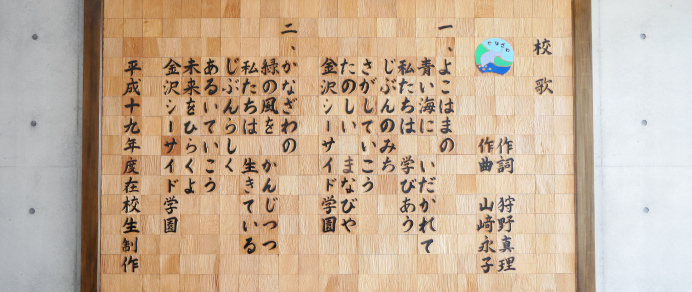 校歌
作詞 狩野真理
作曲 山崎永子
一、よこはまの
青い海に いだかれて
私たちは 学びあう
じぶんのみち
さがしていこう
たのしい まなびや
金沢シーサイド学園
二、かなざわの
緑の風を かんじつつ
私たちは 生きている
じぶんらしく
あるいていこう
未来をひらくよ
金沢シーサイド学園
平成十九年度在校生制作